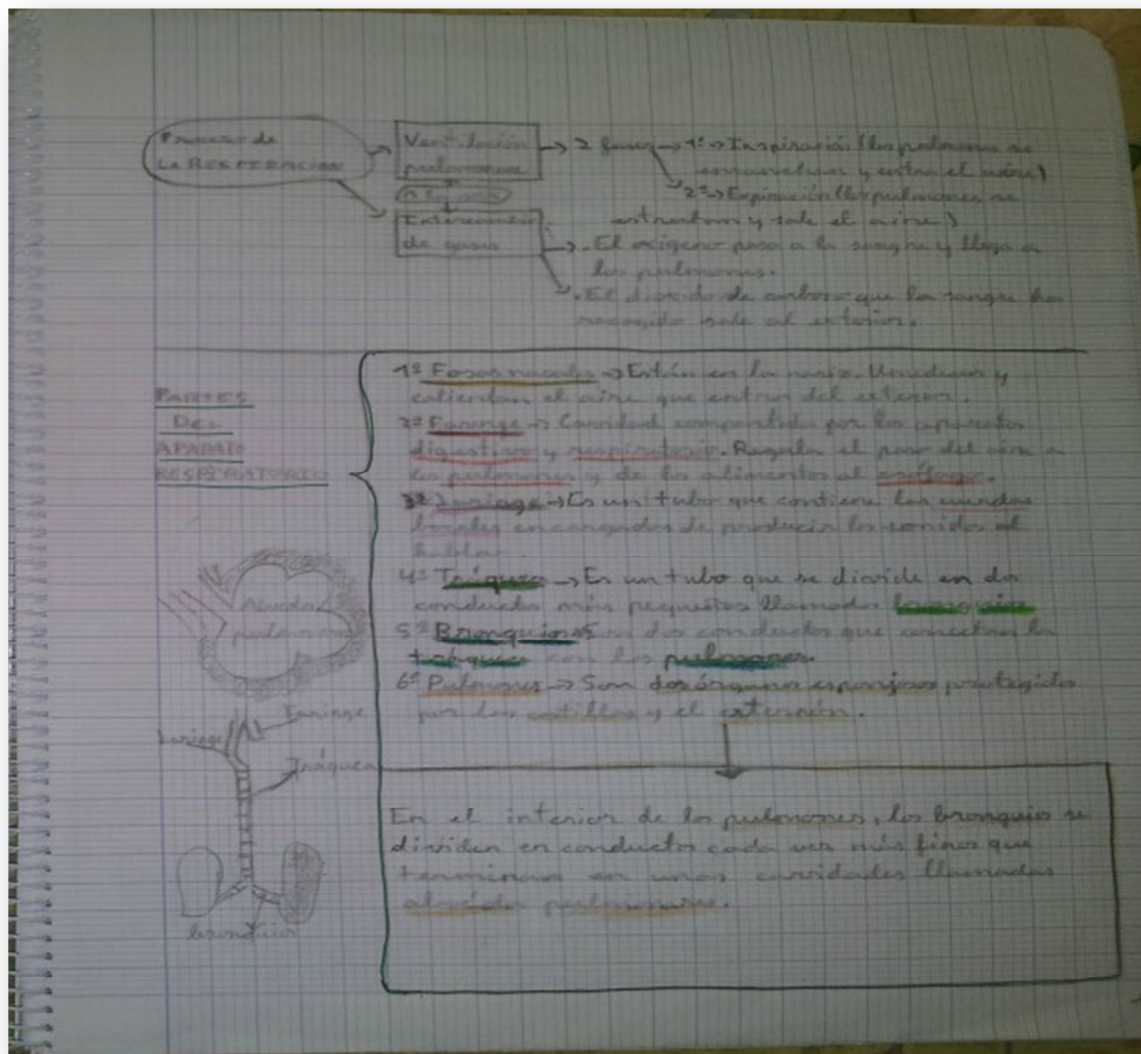 Proceso de
LA RESPIRACIÓN
Ventilación
pulmonar
2 fases → 1º → Inspiración (los pulmones se
ensanchan y entra el aire)
2º → Espiración (los pulmones se
estrechan y sale el aire)
Intercambio
de gases
. El oxígeno pasa a la sangre y llega a
los pulmones.
. El dioxido de carbono que la sangre ha
recogido sale al exterior.
PARTES
DEL
APARATO
RESPIRATORIO
1º Fosas nasales → Están en la nariz. Umedecen y
calientan el aire que entra del exterior.
2º Faringe → Cavidad compartida por los aparatos
digestivo y respiratorio. Regula el paso del aire a
los pulmones y de los alimentos al esófago.
3º Laringe → Es un tubo que contiene las cuerdas
bocales encargadas de producir los sonidos al
hablar.
4º Tráquea → Es un tubo que se divide en dos
conductos más pequeños llamados bronquios
5º Bronquios → Son dos conductos que conectan la
tráquea con los pulmones.
6º Pulmones → Son dos órganos esponjosos protegidos
por las costillas y el esternón.
pulmonar
Faringe
Laringe
Tráquea
bronquios
En el interior de los pulmones, los bronquios se
dividen en conductos cada vez más finos que
terminan en unas cavidades llamadas
pulmonares.